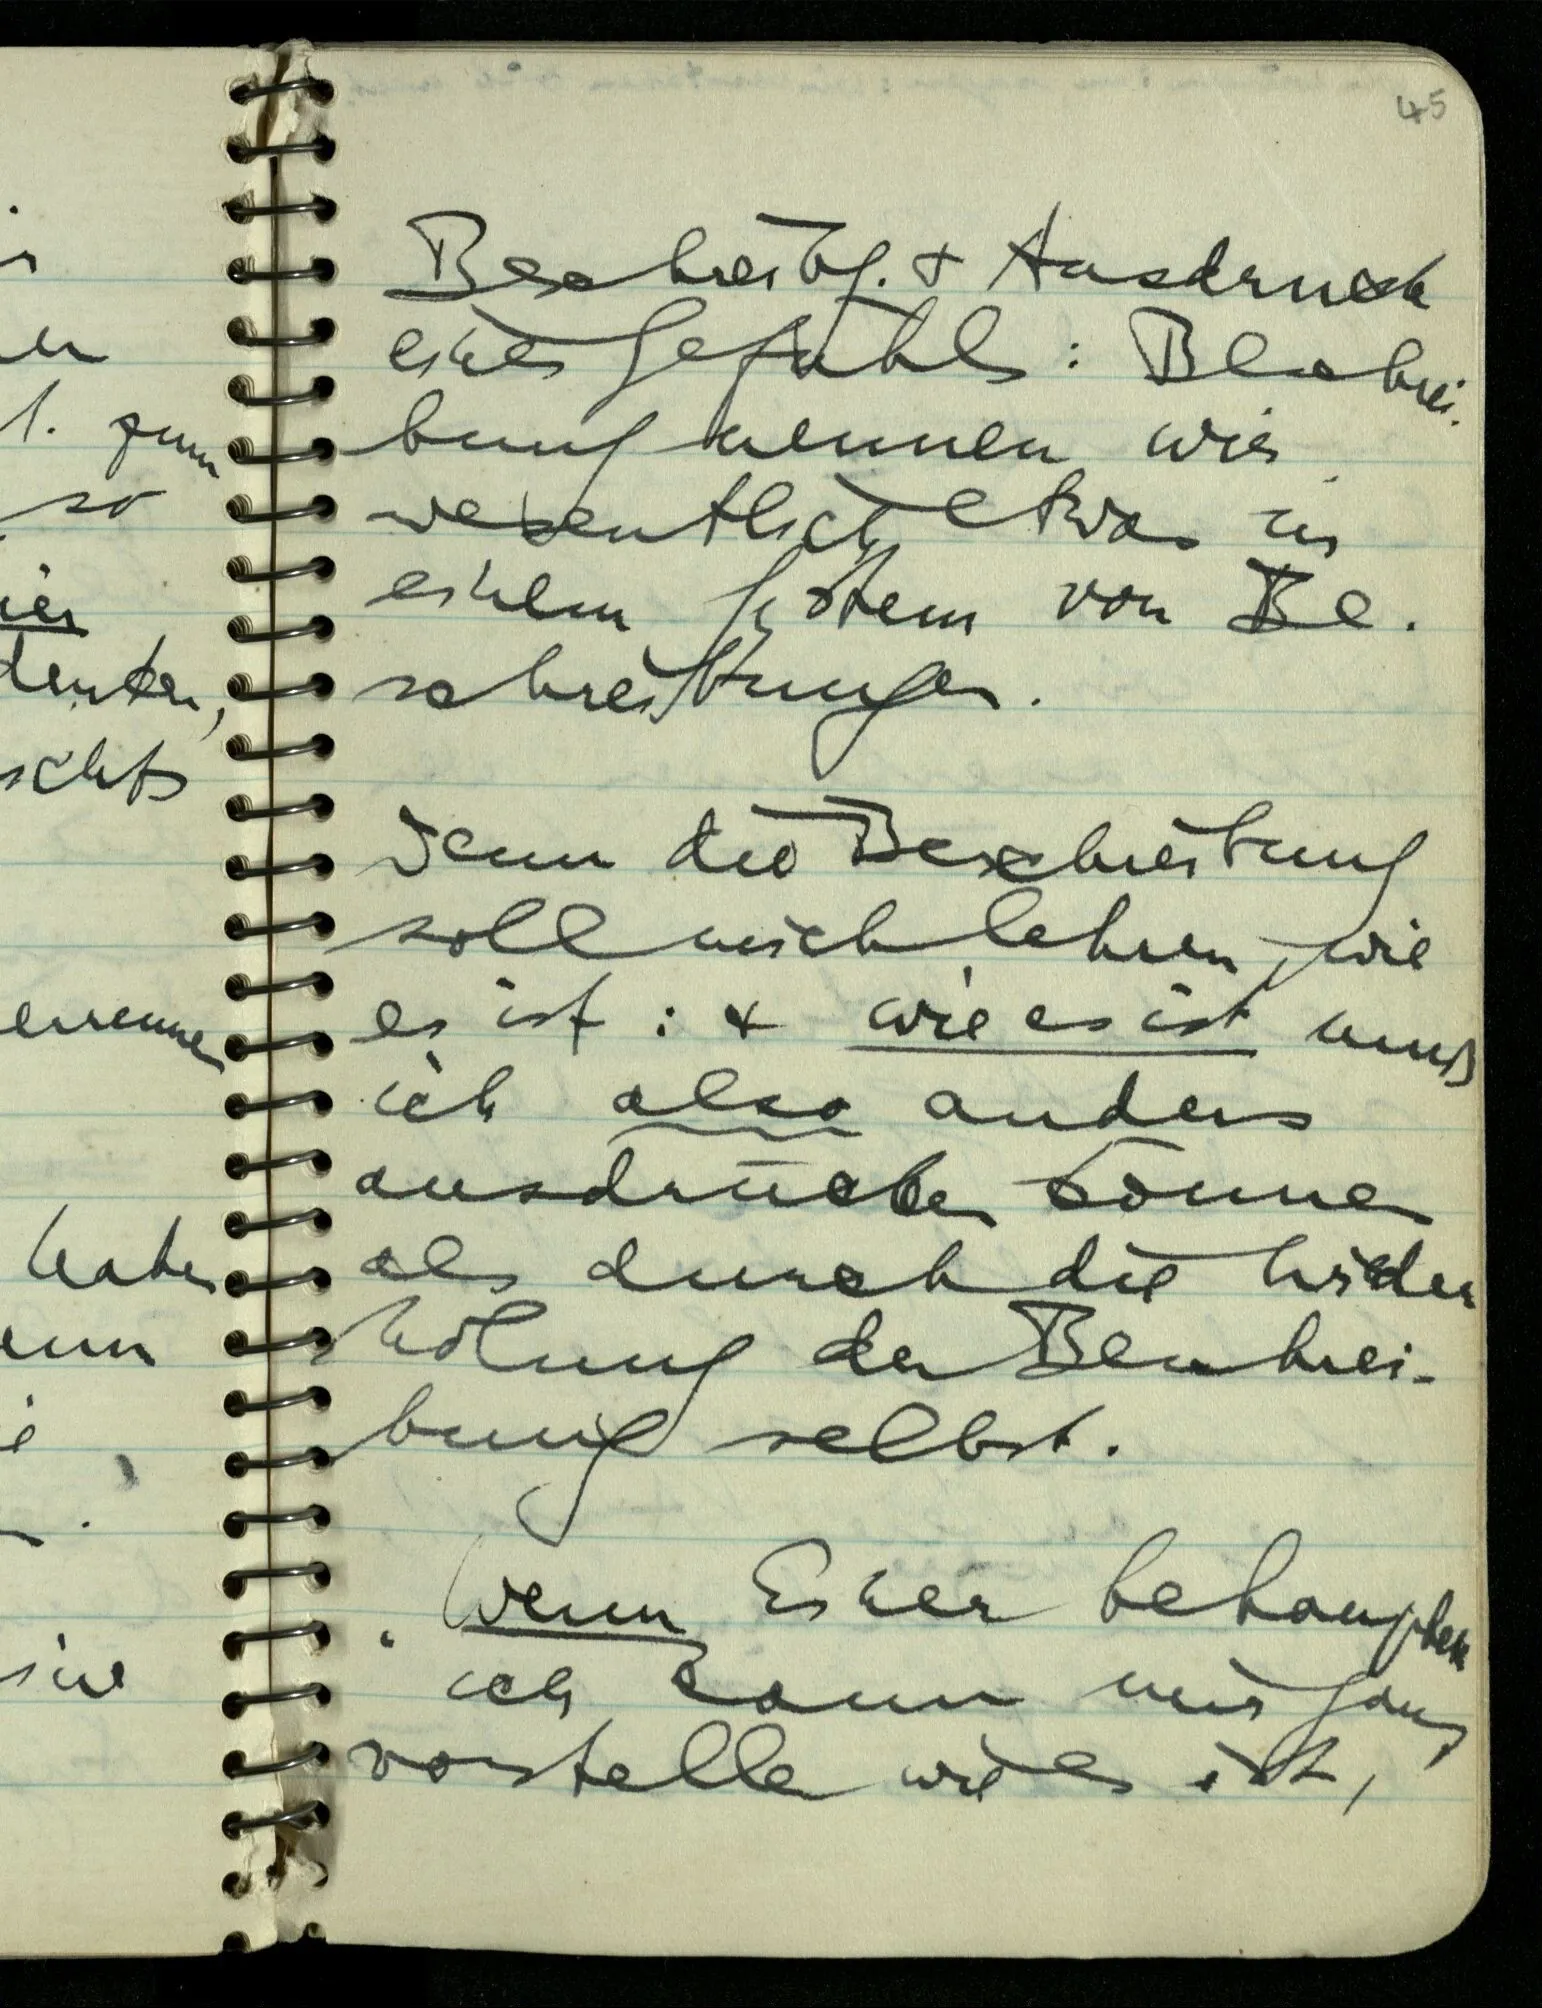 45
Beschreibg. & Ausdruck
eines Gefühls: Beschrei-
bung nennen wir
wesentlich etwas in
einem System von Be-
schreibungen.
Denn die Beschreibung
soll mich lehren, wie
es ist: & wie es ist muß
ich also anders
ausdrücken können
als durch die Wieder
holung der Beschrei-
bung selbst.
Wenn Einer behauptet
ich kann mir ganz
vorstellen wie es ist,
so
denken,
haben